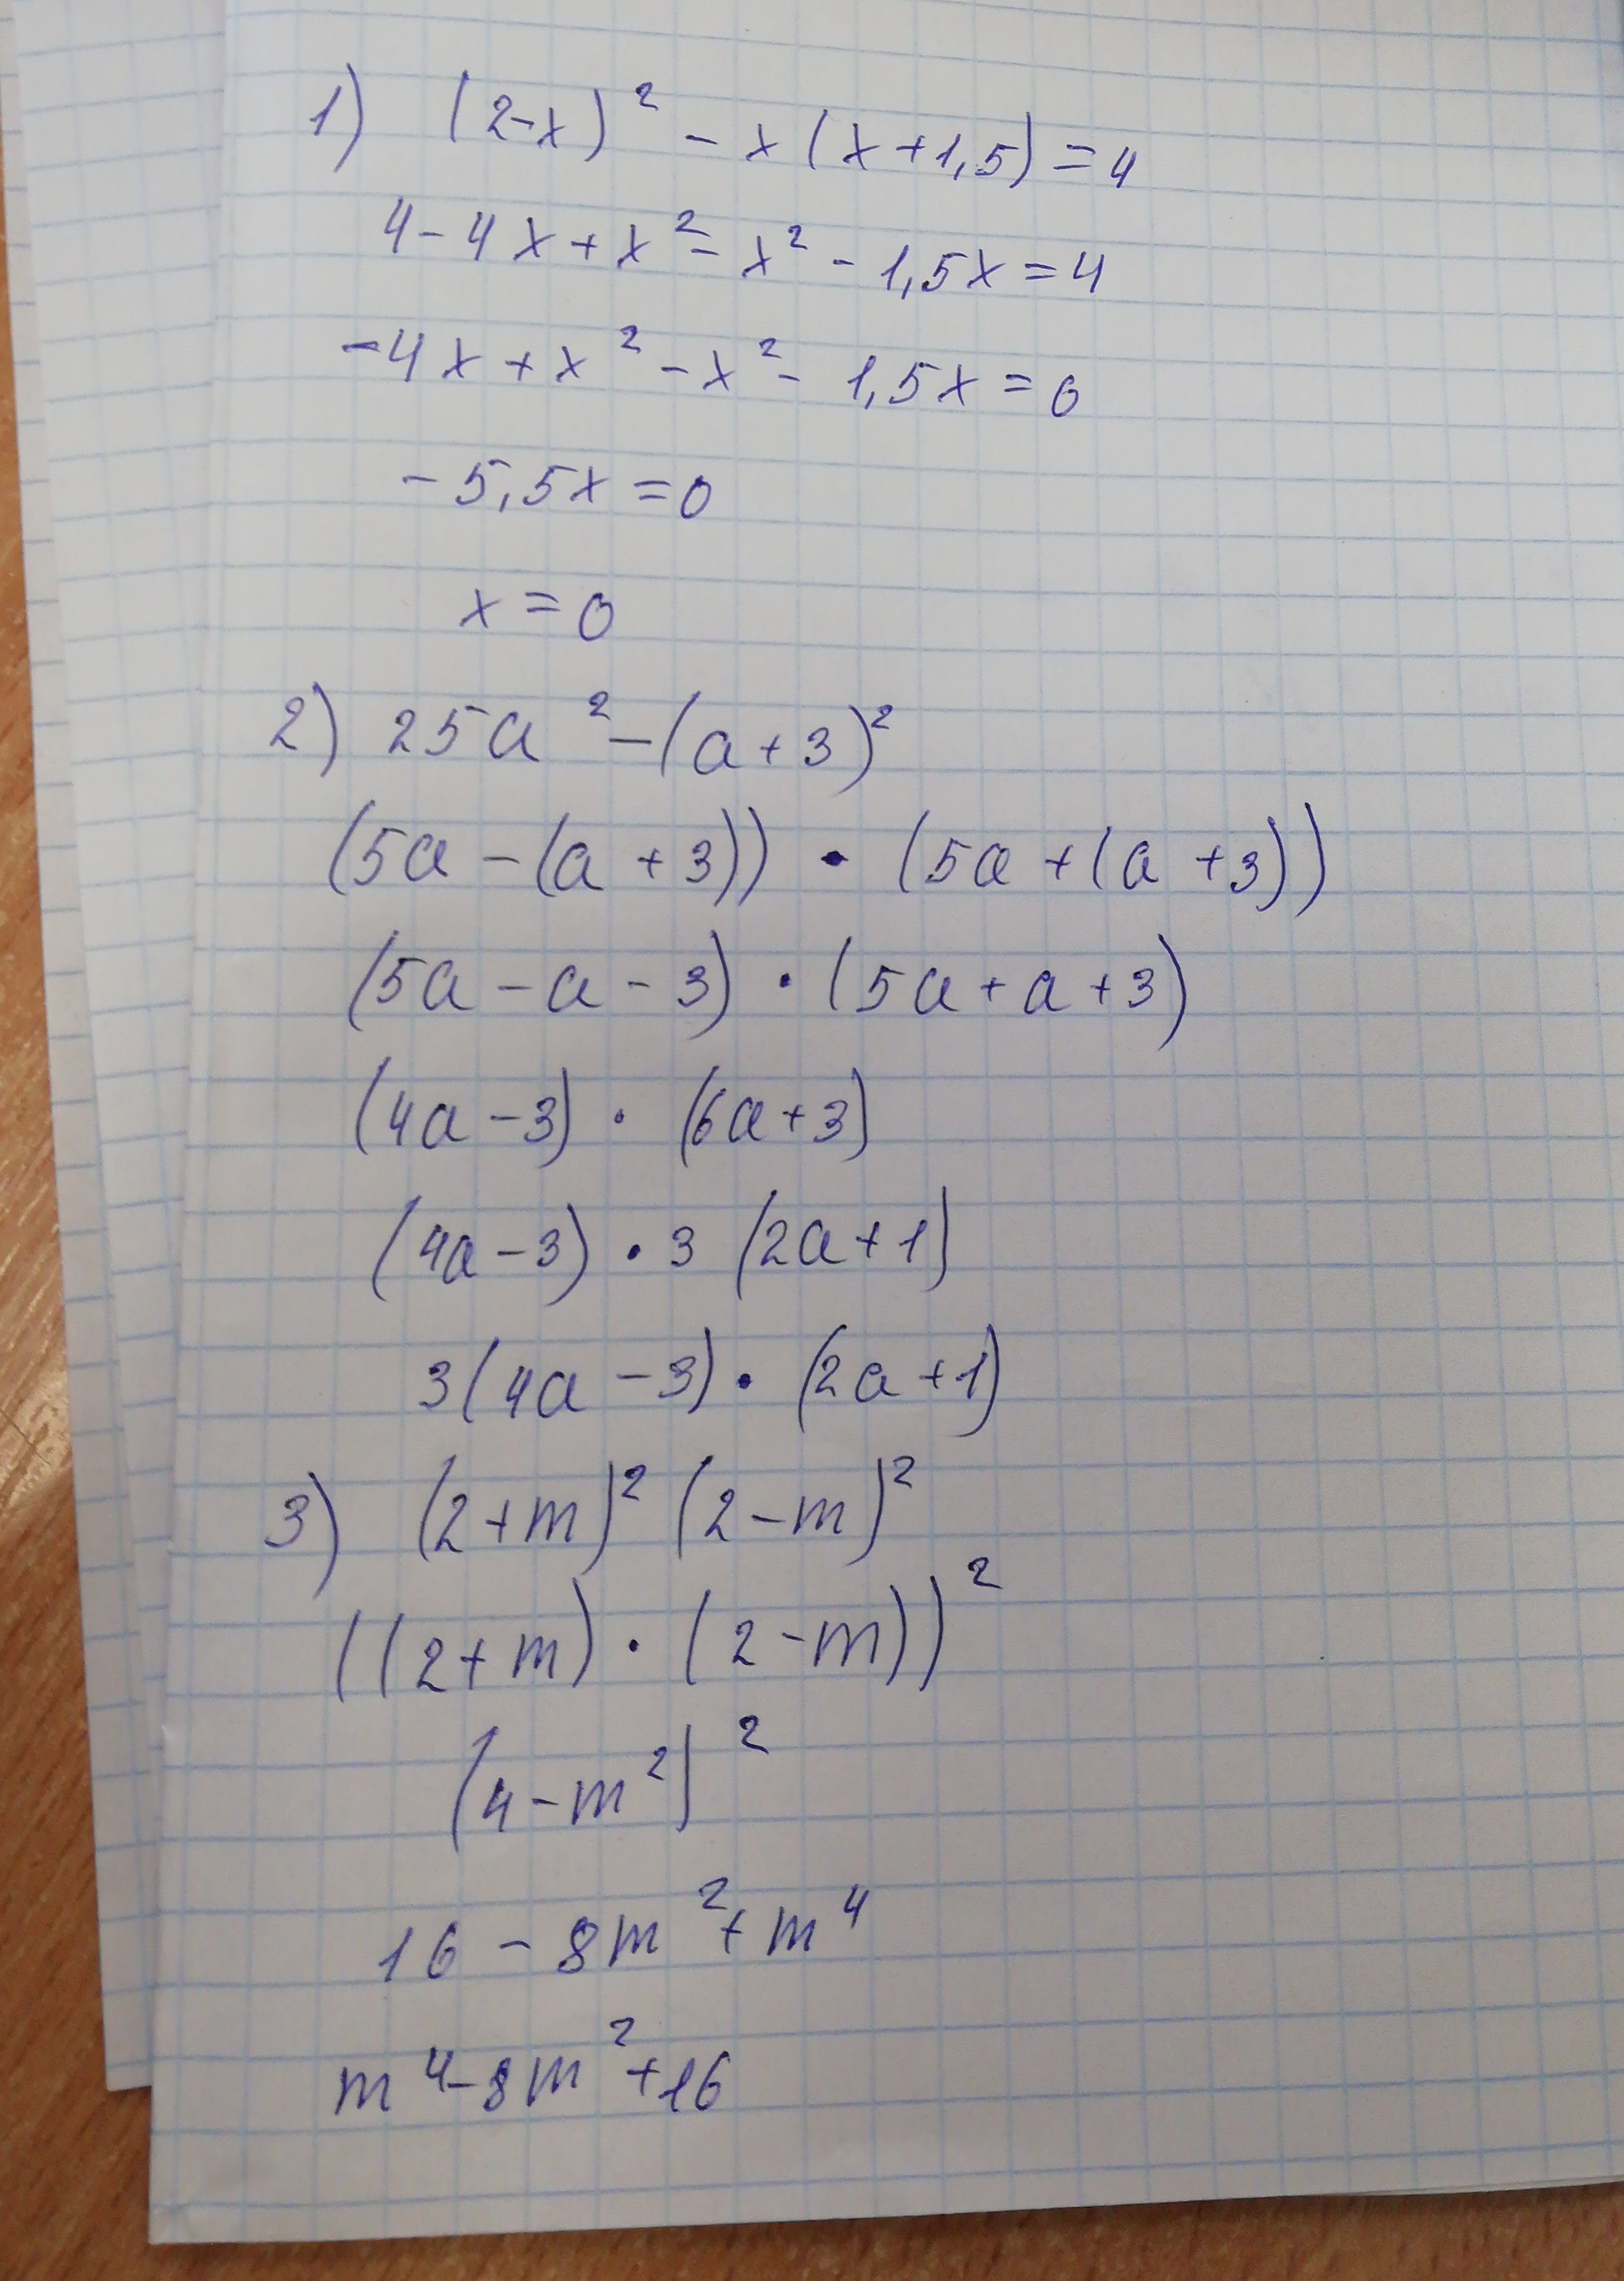 1) (2-x)² - x(x+1,5)=4
4-4x+x²-x²-1,5x=4
-4x+x²-x²-1,5x=0
-5,5x=0
x=0
2) 25a²-(a+3)²
(5a-(a+3))·(5a+(a+3))
(5a-a-3)·(5a+a+3)
(4a-3)·(6a+3)
(4a-3)·3(2a+1)
3(4a-3)·(2a+1)
3) (2+m)²(2-m)²
((2+m)·(2-m))²
(4-m²)²
16-8m²+m⁴
m⁴-8m²+16